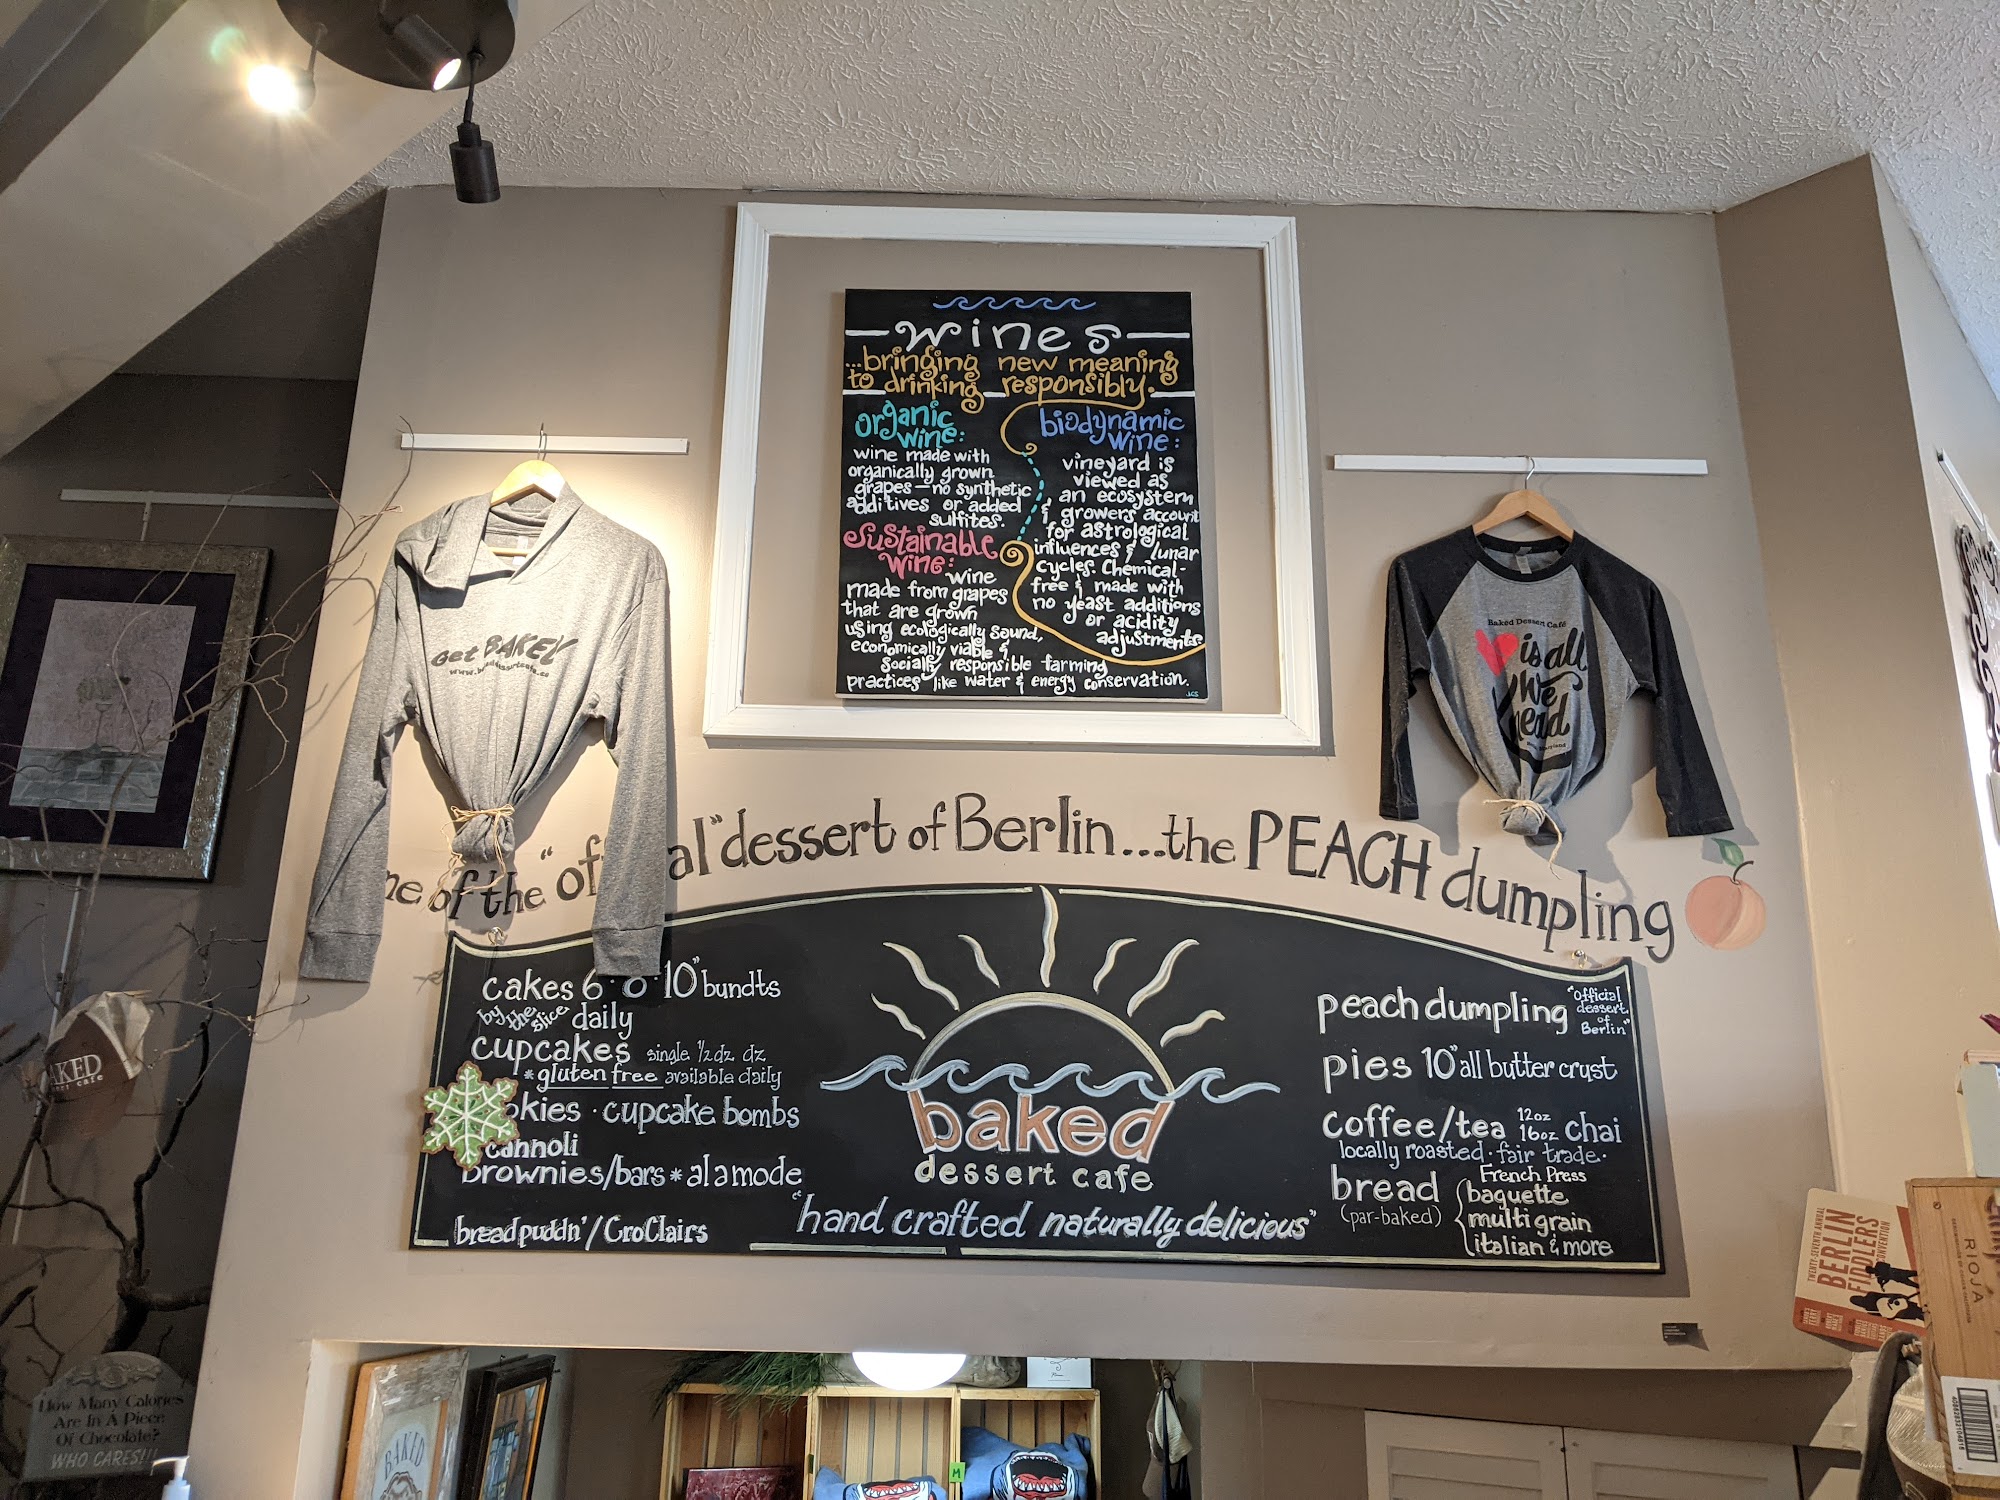 wines
...bringing new meaning
to drinking responsibly.
organic
wine:
wine made with
organically grown
grapes — no synthetic
additives or added
sulfites.
sustainable
wine:
wine
made from grapes
that are grown
using ecologically sound,
economically viable &
socially responsible farming
practices like water & energy conservation.
biodynamic
wine:
vineyard is
viewed as
an ecosystem
& growers account
for astrological
influences & lunar
cycles. Chemical-
free & made with
no yeast additions
or acidity
adjustments
JCS
Get BAKED
Baked Dessert Café
is all
we
of the "official" dessert of Berlin...the PEACH dumpling
cakes 6 · 8 · 10" bundts
by the slice daily
cupcakes single ½dz dz
*gluten free available daily
okies · cupcake bombs
cannoli
brownies/bars * alamode
bread puddn'/CroClairs
baked
dessert cafe
"hand crafted naturally delicious"
peach dumpling "official dessert of Berlin"
pies 10" all butter crust
coffee/tea 12oz 16oz chai
locally roasted · fair trade ·
French Press
bread
(par-baked)
baguette
multi grain
italian & more
AKED
How Many Calories
Are In A Piece
Of Chocolate?
WHO CARES!!!
BAKED
M
TWENTY-SEVENTH ANNUAL
BERLIN
FIDDLERS
CONVENTION
RIOJA